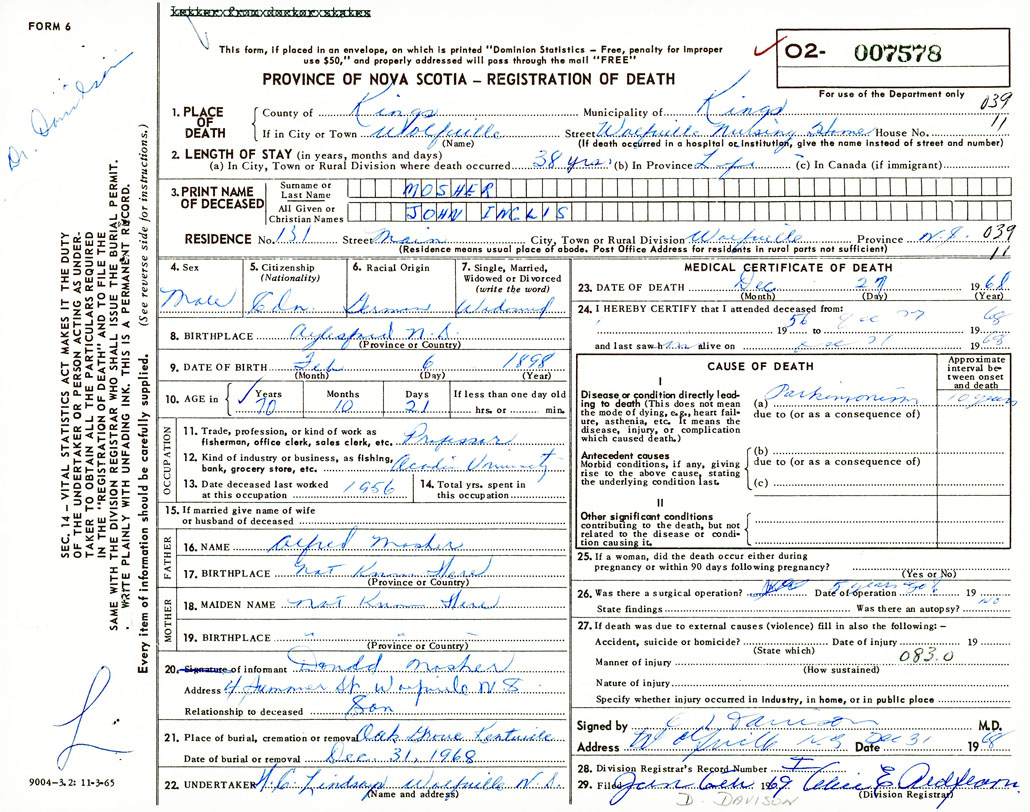 Letter from doctor states
FORM 6
This form, if placed in an envelope, on which is printed "Dominion Statistics – Free, penalty for improper
use $50," and properly addressed will pass through the mail "FREE"
PROVINCE OF NOVA SCOTIA – REGISTRATION OF DEATH
O2- 007578
For use of the Department only
039
11
Dr. Davidson
SEC. 14 – VITAL STATISTICS ACT MAKES IT THE DUTY
OF THE UNDERTAKER OR PERSON ACTING AS UNDER-
TAKER TO OBTAIN ALL THE PARTICULARS REQUIRED
IN THE "REGISTRATION OF DEATH" AND TO FILE THE
SAME WITH THE DIVISION REGISTRAR WHO SHALL ISSUE THE BURIAL PERMIT.
WRITE PLAINLY WITH UNFADING INK. THIS IS A PERMANENT RECORD.
Every item of information should be carefully supplied. (See reverse side for instructions.)
1. PLACE OF DEATH
County of Kings Municipality of Kings
If in City or Town Wolfville Street Wolfville Nursing Home House No.
(Name) (If death occurred in a hospital or institution, give the name instead of street and number)
2. LENGTH OF STAY (in years, months and days)
(a) In City, Town or Rural Division where death occurred 38 yrs. (b) In Province Life (c) In Canada (if immigrant)
3. PRINT NAME OF DECEASED
Surname or Last Name MOSHER
All Given or Christian Names JOHN INGLIS
RESIDENCE No. 131 Street Main City, Town or Rural Division Wolfville Province N.S. 039
(Residence means usual place of abode. Post Office Address for residents in rural parts not sufficient) 11
4. Sex Male
5. Citizenship (Nationality) Cdn.
6. Racial Origin German
7. Single, Married, Widowed or Divorced (write the word) Widowed
8. BIRTHPLACE Aylesford N.S.
(Province or Country)
9. DATE OF BIRTH Feb 6 1898
(Month) (Day) (Year)
10. AGE in Years 70 Months 10 Days 21 If less than one day old hrs. or min.
OCCUPATION
11. Trade, profession, or kind of work as fisherman, office clerk, sales clerk, etc. Professor
12. Kind of industry or business, as fishing, bank, grocery store, etc. Acadia University
13. Date deceased last worked at this occupation 1956
14. Total yrs. spent in this occupation
15. If married give name of wife or husband of deceased
FATHER
16. NAME Alfred Mosher
17. BIRTHPLACE Not Known Here
(Province or Country)
MOTHER
18. MAIDEN NAME Not Known Here
19. BIRTHPLACE " "
(Province or Country)
20. Signature of informant Donald Mosher
Address 4 Summer St. Wolfville N S
Relationship to deceased Son
21. Place of burial, cremation or removal Oak Grove Kentville
Date of burial or removal Dec. 31, 1968
22. UNDERTAKER Lindsay Wolfville N.S.
(Name and address)
9004-3.2: 11-3-65
MEDICAL CERTIFICATE OF DEATH
23. DATE OF DEATH Dec. 27 1968
(Month) (Day) (Year)
24. I HEREBY CERTIFY that I attended deceased from:
19 56 to Dec 27 19 68
and last saw him alive on Dec 21 19 68
CAUSE OF DEATH
Approximate interval between onset and death
I
Disease or condition directly leading to death (This does not mean the mode of dying, e.g., heart failure, asthenia, etc. It means the disease, injury, or complication which caused death.)
(a) Parkinsonism 10 years
due to (or as a consequence of)
Antecedent causes
Morbid conditions, if any, giving rise to the above cause, stating the underlying condition last.
(b)
due to (or as a consequence of)
(c)
II
Other significant conditions contributing to the death, but not related to the disease or condition causing it.
25. If a woman, did the death occur either during pregnancy or within 90 days following pregnancy?
(Yes or No)
26. Was there a surgical operation? yes Date of operation 8 years ago 19
State findings Was there an autopsy? no
27. If death was due to external causes (violence) fill in also the following: –
Accident, suicide or homicide? Date of injury 19
(State which)
Manner of injury 083.0
(How sustained)
Nature of injury
Specify whether injury occurred in industry, in home, or in public place
Signed by Davison M.D.
Address Wolfville N.S. Date Dec 31 19 68
28. Division Registrar's Record Number
29. Filed Jan 1969
(Division Registrar)
D. DAVISON